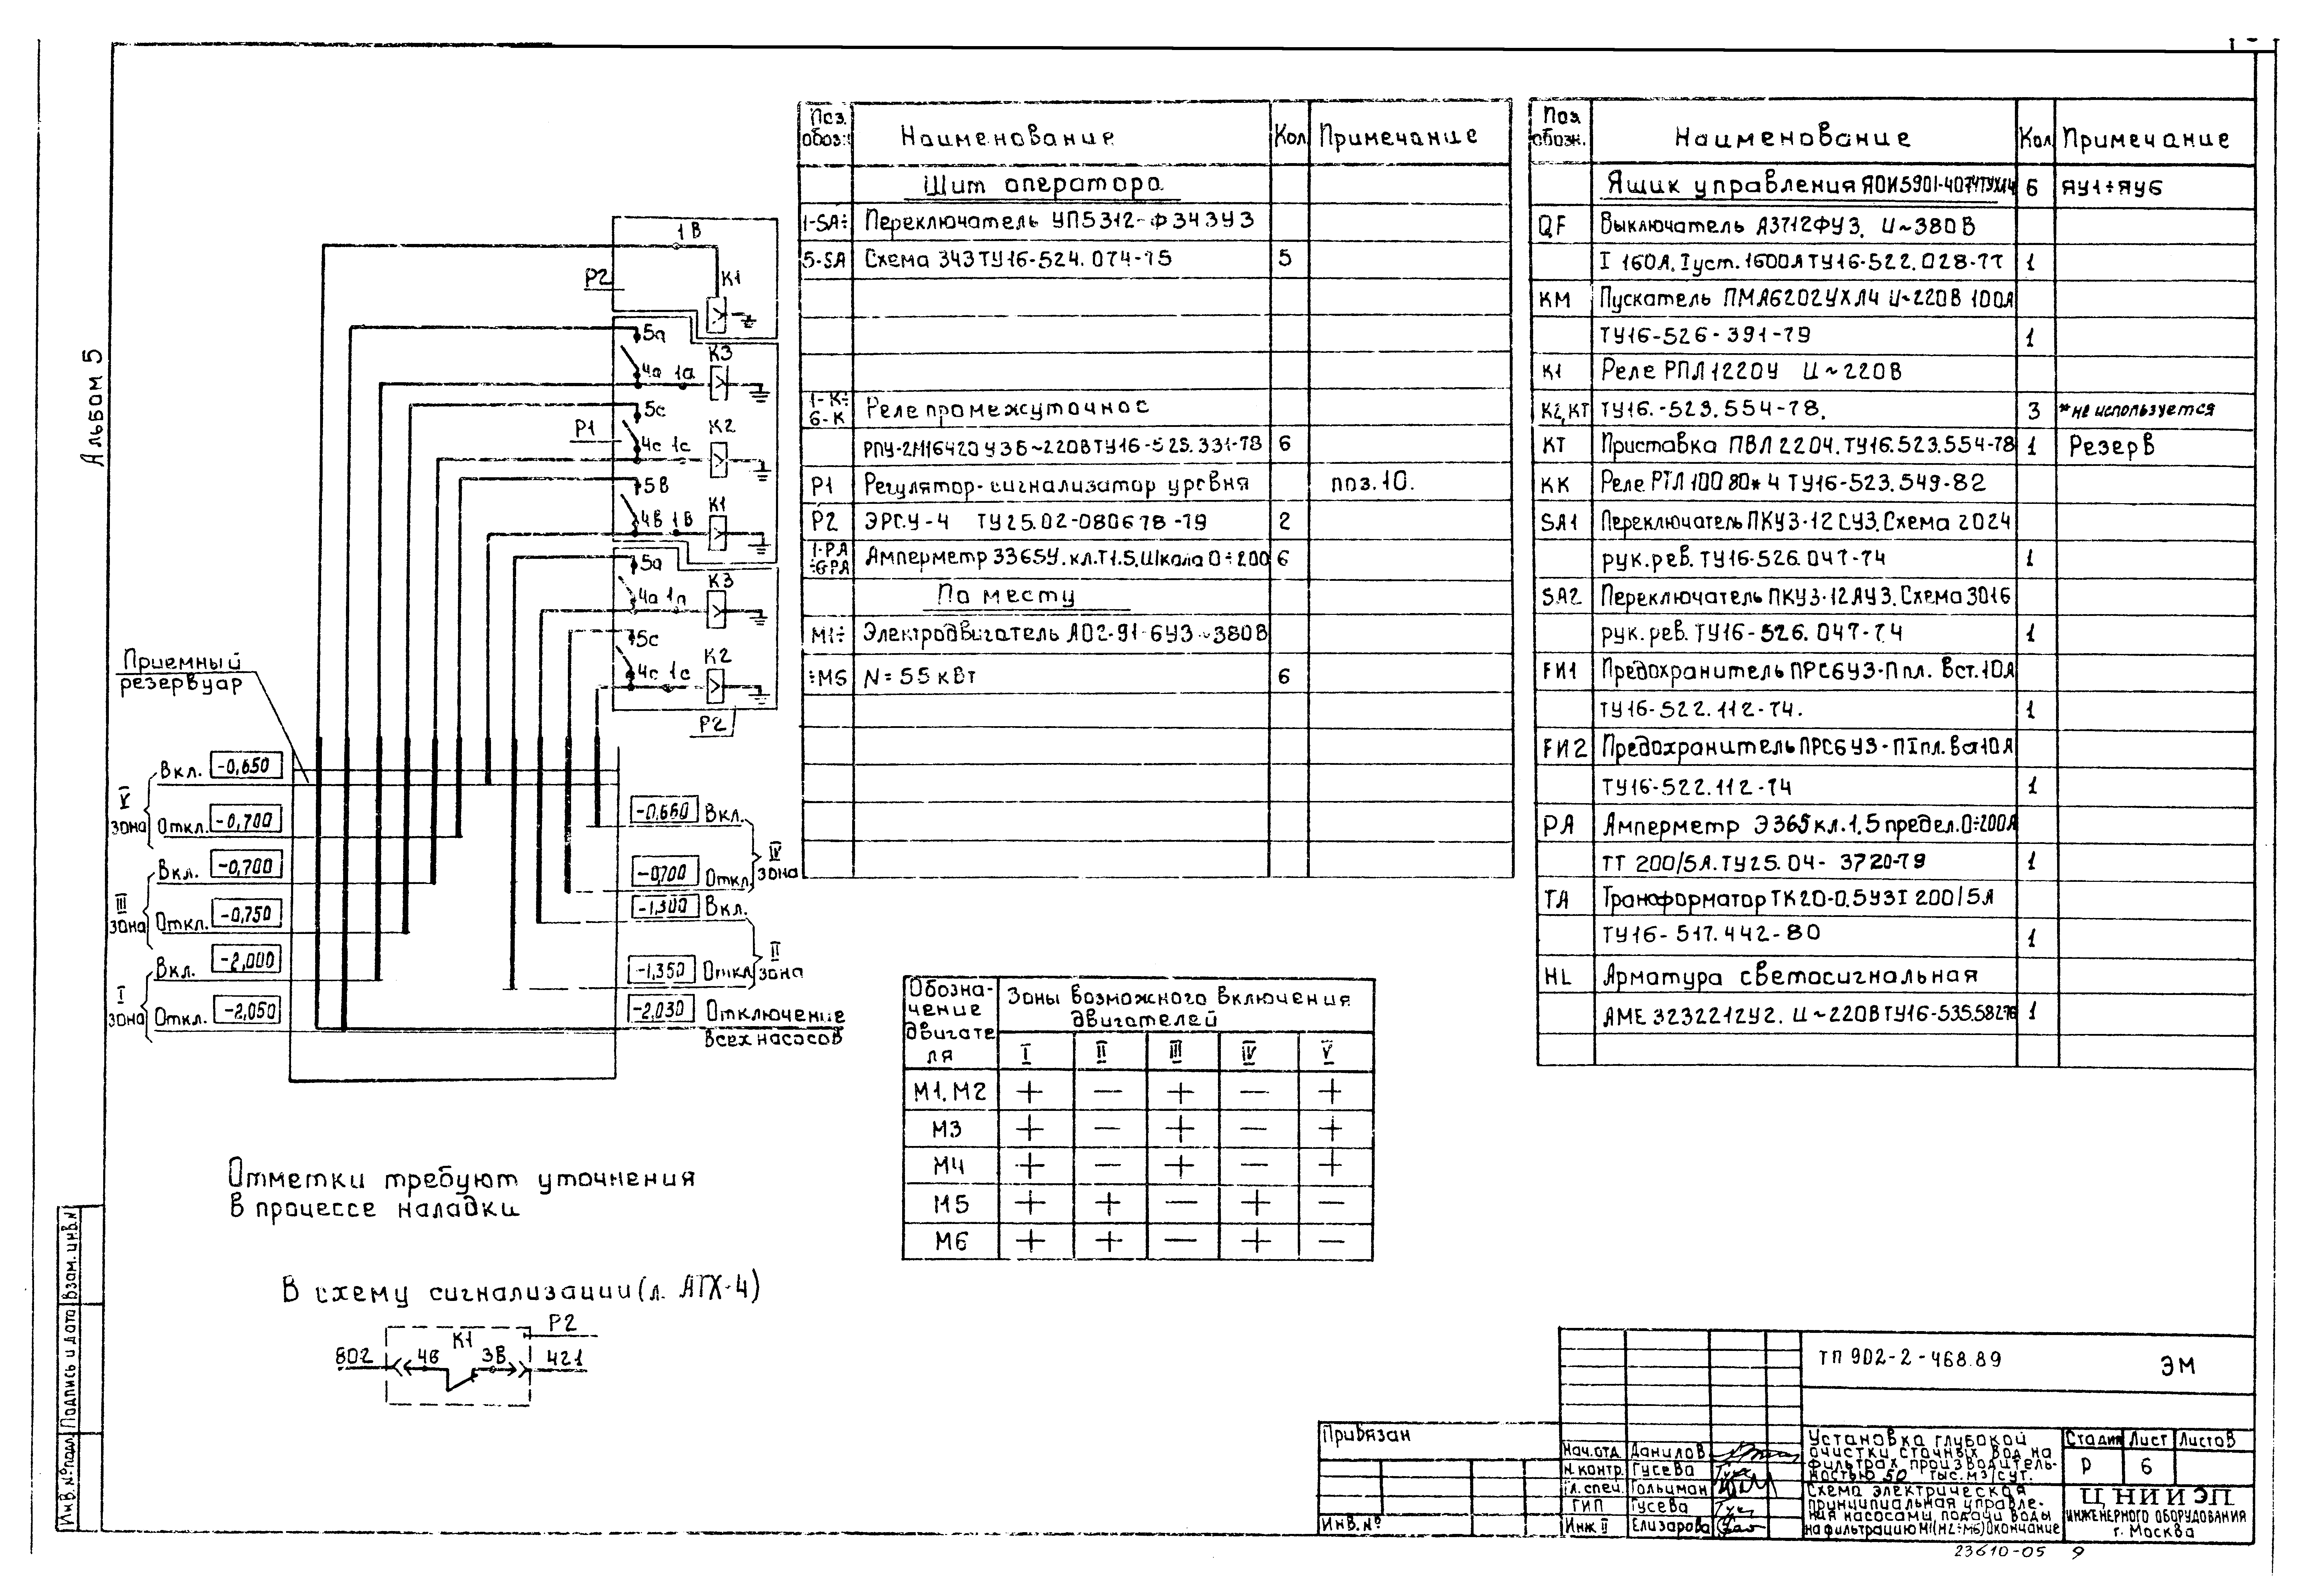 Альбом 5
1В
К1
Р2
5а
К3
4а 1а
5с
К2
Р1
4с 1с
5В
К1
4В 1В
5а
К3
4а 1а
5с
К2
4с 1с
Р2
Приемный
резервуар
V зона
Вкл. -0,650
Откл. -0,700
III зона
Вкл. -0,700
Откл. -0,750
I зона
Вкл. -2,000
Откл. -2,050
-0,660 Вкл.
-0,700 Откл.
IV зона
-1,300 Вкл.
-1,350 Откл.
II зона
-2,030 Отключение
всех насосов
Отметки требуют уточнения
в процессе наладки
В схему сигнализации (л. АТХ-4)
Р2
К1
802 4В 3В 421
Поз. обоз. Наименование Кол Примечание
Щит оператора
1-SA÷ Переключатель УП5312-Ф343У3
5-SA Схема 343 ТУ16-524.074-75 5
1-К÷
6-К Реле промежуточное
РПУ-2М16420У3Б ~220В ТУ16-523.331-78 6
Р1 Регулятор-сигнализатор уровня поз.10.
Р2 ЭРСУ-4 ТУ25.02-080678-79 2
1-РА
÷6-РА Амперметр Э365У.кл.Т1.5.Шкала 0÷200 6
По месту
М1÷ Электродвигатель АО2-91-6У3 ~380В
÷М6 N=55 кВт 6
Поз. обозн. Наименование Кол Примечание
Ящик управления ЯОИ5901-4074ТУХЛ4 6 ЯУ1÷ЯУ6
QF Выключатель А3712ФУ3. U~380В
I 160А. Iуст. 1600А ТУ16-522.028-77 1
КМ Пускатель ПМА6202УХЛ4 U~220В 100А
ТУ16-526-391-79 1
К1 Реле РПЛ1220У U~220В
К2,КТ ТУ16.-523.554-78. 3 *не используется
КТ Приставка ПВЛ2204.ТУ16.523.554-78 1 Резерв
КК Реле РТЛ100 80*4 ТУ16-523.549-82
SA1 Переключатель ПКУ3-12СУ3.Схема 2024
рук.рев. ТУ16-526.047-74 1
SA2 Переключатель ПКУ3-12АУ3.Схема 3016
рук.рев. ТУ16-526.047-74 1
FИ1 Предохранитель ПРС6У3-П пл. вст.10А
ТУ16-522.112-74. 1
FИ2 Предохранитель ПРС6У3-ПIпл.вст10А
ТУ16-522.112-74 1
РА Амперметр Э365 кл.1,5 предел.0÷200А
ТТ 200/5А.ТУ25.04- 3720-79 1
ТА Трансформатор ТК20-0.5У3Т 200/5А
ТУ16-517.442-80 1
HL Арматура светосигнальная
АМЕ3232212У2. U~220В ТУ16-535.582-76 1
Обозна-
чение
двигате
ля
Зоны возможного включения
двигателей
I II III IV V
М1.М2 + — + — +
М3 + — + — +
М4 + — + — +
М5 + + — + —
М6 + + — + —
Инв.№подл. Подпись и дата Взам.инв.№
Привязан
Инв.№
Нач.отд. Данилов
Н.контр. Гусева
Гл.спец. Гольцман
ГИП Гусева
Инж II Елизарова
ТП 902-2-468.89 ЭМ
Установка глубокой
очистки сточных вод на
фильтрах производитель-
ностью 50 тыс.м3/сут.
Стадия Лист Листов
Р 6
Схема электрическая
принципиальная управле-
ния насосами подачи воды
на фильтрацию М1(М2÷М6) Окончание
ЦНИИЭП
ИНЖЕНЕРНОГО ОБОРУДОВАНИЯ
г. Москва
23610-05 9